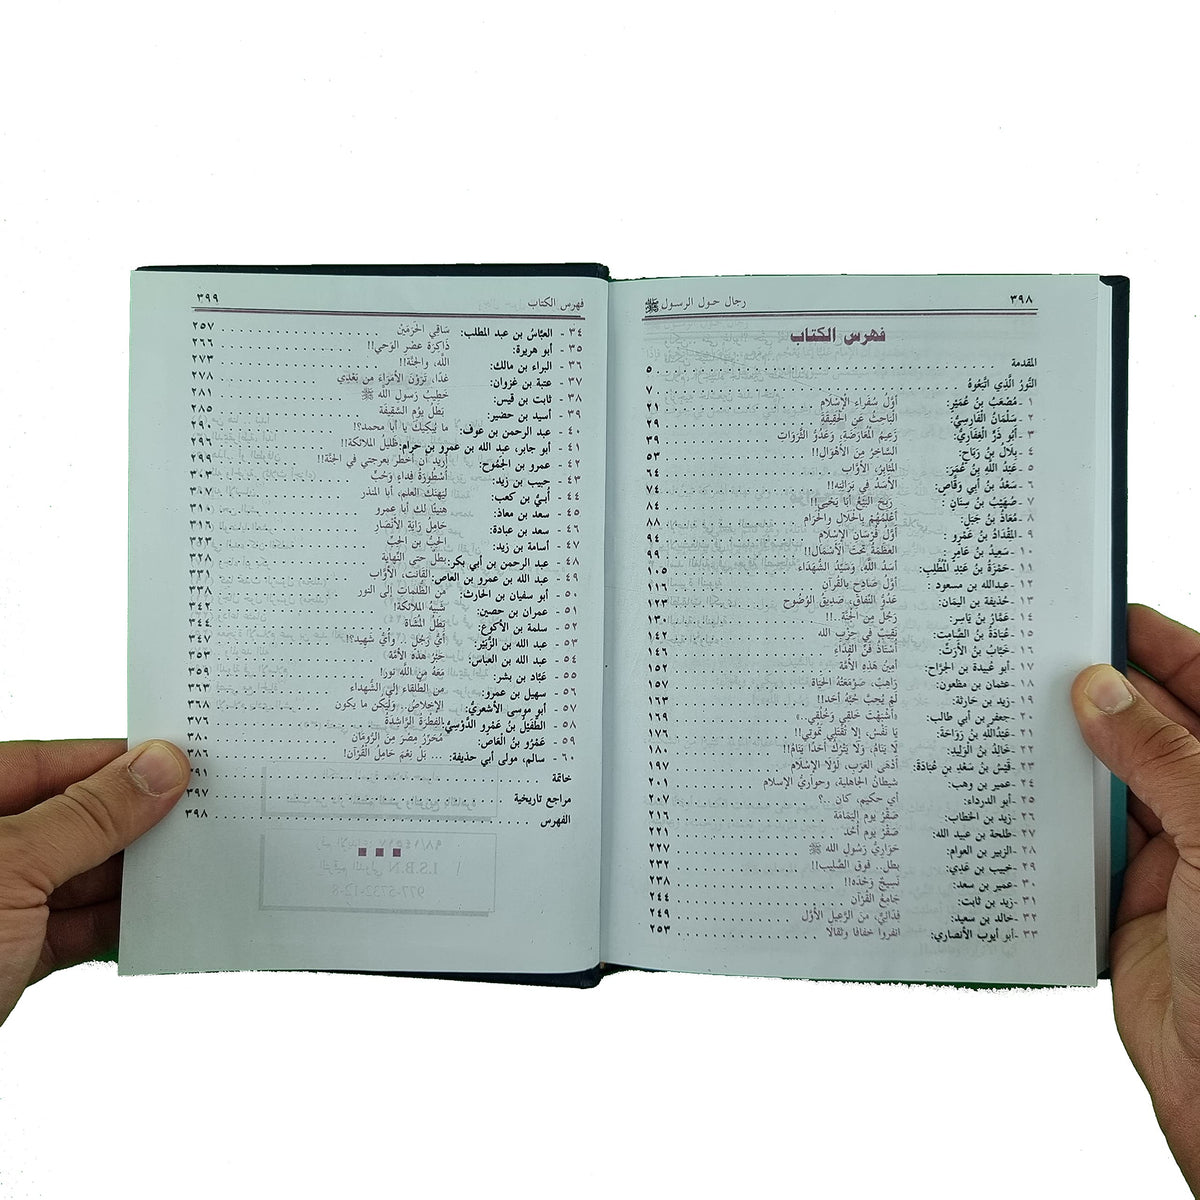 ٣٩٨ رجال حول الرسول ﷺ
فهرس الكتاب
المقدمة ٥
النُّورُ الَّذِي اتَّبَعُوهُ ٧
١ - مُصْعَبُ بنُ عُمَيْرٍ: أَوَّلُ سُفَرَاءِ الإِسْلَامِ ٢١
٢ - سَلْمَانُ الْفَارِسِيُّ: الْبَاحِثُ عَنِ الْحَقِيقَةِ ٢٩
٣ - أَبُو ذَرٍّ الْغِفَارِيُّ: زَعِيمُ الْمُعَارَضَةِ، وَعَدُوُّ الثَّرَوَاتِ ٣٩
٤ - بِلَالُ بنُ رَبَاحٍ: السَّاخِرُ مِنَ الأَهْوَالِ!! ٥٣
٥ - عَبْدُ اللَّهِ بنُ عُمَرَ: المُثَابِرُ، الأَوَّاب ٦٤
٦ - سَعْدُ بنُ أَبِي وَقَّاصٍ: الأَسَدُ فِي بَرَاثِنِهِ!! ٧٤
٧ - صُهَيْبُ بنُ سِنَانٍ: رَبِحَ الْبَيْعُ أَبَا يَحْيَى!! ٨٤
٨ - مُعَاذُ بنُ جَبَلٍ: أَعْلَمُهُمْ بِالْحَلَالِ وَالْحَرَامِ ٨٨
٩ - المِقْدَادُ بنُ عَمْرٍو: أَوَّلُ فُرْسَانِ الإِسْلَامِ ٩٤
١٠ - سَعِيدُ بنُ عَامِرٍ: الْعَظَمَةُ تَحْتَ الأَسْمَالِ!! ٩٩
١١ - حَمْزَةُ بنُ عَبْدِ الْمُطَّلِبِ: أَسَدُ اللَّهِ، وَسَيِّدُ الشُّهَدَاءِ ١٠٥
١٢ - عبدالله بن مسعود: أَوَّلُ صَادِحٍ بِالْقُرْآنِ ١١٦
١٣ - حُذيفة بن اليَمان: عَدُوُّ النِّفَاقِ، صَدِيقُ الْوُضُوحِ ١٢٣
١٤ - عَمَّارُ بن يَاسِر: رَجُلٌ مِنَ الْجَنَّةِ..!! ١٣٠
١٥ - عُبَادَةُ بنُ الصَّامِتِ: نَقِيبٌ فِي حِزْبِ الله ١٤٢
١٦ - خَبَّابُ بنُ الأَرَتِّ: أُسْتَاذُ فَنِّ الْفِدَاءِ ١٤٦
١٧ - أبو عُبيدة بن الجرَّاح: أَمِينُ هَذِهِ الأُمَّة ١٥٢
١٨ - عثمان بن مظعون: رَاهِبٌ، صَوْمَعَتُهُ الْحَيَاة ١٥٧
١٩ - زيد بن حارثة: لَمْ يُحِبَّ حُبَّهُ أَحَدًا! ١٦٣
٢٠ - جعفر بن أبي طالب: «أَشْبَهْتَ خَلْقِي وَخُلُقِي..» ١٦٩
٢١ - عبدالله بن رَوَاحَة: يَا نَفْسُ، إِلَّا تُقْتَلِي تَمُوتِي!! ١٧٦
٢٢ - خالد بن الْوَلِيد: لَا يَنَامُ، وَلَا يَتْرُكُ أَحَدًا يَنَامُ!! ١٨٠
٢٣ - قَيْسُ بنُ سَعْدِ بنِ عُبَادَةَ: أَدْهَى الْعَرَبِ، لَوْلَا الإِسْلَامِ ١٩٧
٢٤ - عمير بن وهب: شيطان الجاهلية، وحواريّ الإسلام ٢٠١
٢٥ - أبو الدرداء: أي حكيم، كان ..؟ ٢٠٧
٢٦ - زيد بن الخطاب: صَقْرُ يوم اليَمَامة ٢١٦
٢٧ - طلحة بن عبيد الله: صَقْرُ يوم أُحُد ٢٢١
٢٨ - الزبير بن العوام: حَوَارِيُّ رَسُولِ الله ﷺ ٢٢٧
٢٩ - خبيب بن عَدِي: بطل.. فوق الصَّلِيب!! ٢٣٢
٣٠ - عمير بن سعد: نَسِيجُ وَحْدَه!! ٢٣٨
٣١ - زيد بن ثابت: جَامِعُ القُرْآن ٢٤٤
٣٢ - خالد بن سعيد: فِدَائِيٌّ، مِنَ الرَّعِيلِ الأَوَّل ٢٤٩
٣٣ - أبو أيوب الأنصاري: انفروا خفافا وثقالا ٢٥٣
فهرس الكتاب ٣٩٩
٣٤ - العبَّاسُ بن عبد المطلب: سَاقِي الْحَرَمَيْن ٢٥٧
٣٥ - أبو هريرة: ذَاكِرَةُ عَصْرِ الْوَحْي!! ٢٦٦
٣٦ - البراء بن مالك: الله، والجَنَّة!! ٢٧٣
٣٧ - عتبة بن غزوان: غدًا، تَرَوْنَ الأمَرَاءَ مِن بَعْدِي ٢٧٨
٣٨ - ثابت بن قيس: خَطِيبُ رَسُولِ الله ﷺ ٢٨١
٣٩ - أسيد بن حضير: بَطَلُ يَوْمِ السَّقِيفَة ٢٨٥
٤٠ - عبد الرحمن بن عوف: ما يُبْكِيكَ يا أبا محمد؟! ٢٩٠
٤١ - أبو جابر، عبد الله بن عمرو بن حرام: ظَلِيلُ الملائكة!! ٢٩٦
٤٢ - عمرو بن الجَمُوح: أُرِيدُ أَنْ أَخْطُرَ بِعَرْجَتِي في الجَنَّة!! ٢٩٩
٤٣ - حبيب بن زيد: أُسْطُورَةُ فِدَاءٍ وحُبٍّ ٣٠٣
٤٤ - أُبَيُّ بن كعب: لِيَهْنِكَ العِلْمُ، أبا المنذر ٣٠٧
٤٥ - سعد بن معاذ: هَنِيئًا لكَ أبا عمرو ٣١٠
٤٦ - سعد بن عبادة: حَامِلُ رَايَةِ الأَنْصَار ٣١٦
٤٧ - أسامة بن زيد: الحِبُّ بن الحِبِّ ٣٢٣
٤٨ - عبد الرحمن بن أبي بكر: بَطَلٌ حتى النِّهاية ٣٢٨
٤٩ - عبد الله بن عمرو بن العاص: القَانِت، الأَوَّاب ٣٣١
٥٠ - أبو سفيان بن الحارث: مِنَ الظُّلُماتِ إلى النور ٣٣٨
٥١ - عمران بن حصين: شَبِيهُ الملائكة! ٣٤٢
٥٢ - سلمة بن الأكوع: بَطَلُ المُشَاة ٣٤٤
٥٣ - عبد الله بن الزُّبَيْر: أَيُّ رَجُلٍ .. وأي شَهيد؟!.. ٣٤٧
٥٤ - عبد الله بن العباس: حَبْرُ هَذِهِ الأُمَّة ٣٥٣
٥٥ - عَبَّاد بن بِشر: مَعَهُ مِنَ الله نور! ٣٥٩
٥٦ - سهيل بن عمرو: مِن الطُّلَقاء إلى الشُّهَداء ٣٦٣
٥٧ - أبو موسى الأشعريُّ: الإِخلاصُ.. وَلْيَكُن ما يكون ٣٦٨
٥٨ - الطُّفَيْلُ بن عَمْرو الدَّوْسيُّ: الفِطرَةُ الرَّاشِدَةُ ٣٧٦
٥٩ - عَمْرُو بنُ العَاصِّ: مُحَرِّرُ مِصْرَ مِنَ الرُّومَان ٣٨٠
٦٠ - سالم، مولى أبي حذيفة: ... بَل نِعْمَ حَامِلُ القُرْآن! ٣٨٦
خاتمة ٣٩١
مراجع تاريخية ٣٩٧
الفهرس ٣٩٨